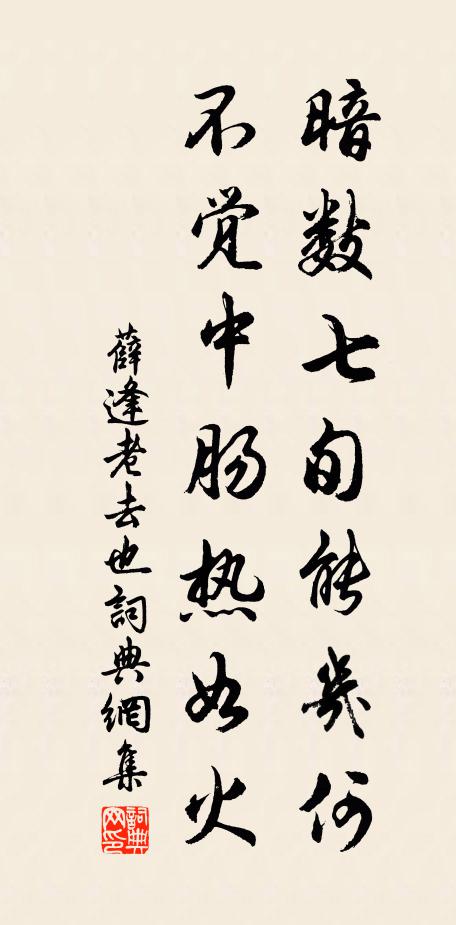 暗数七旬能几何
不觉中肠热如火
薛逢老去也詞典網集
詞典網印